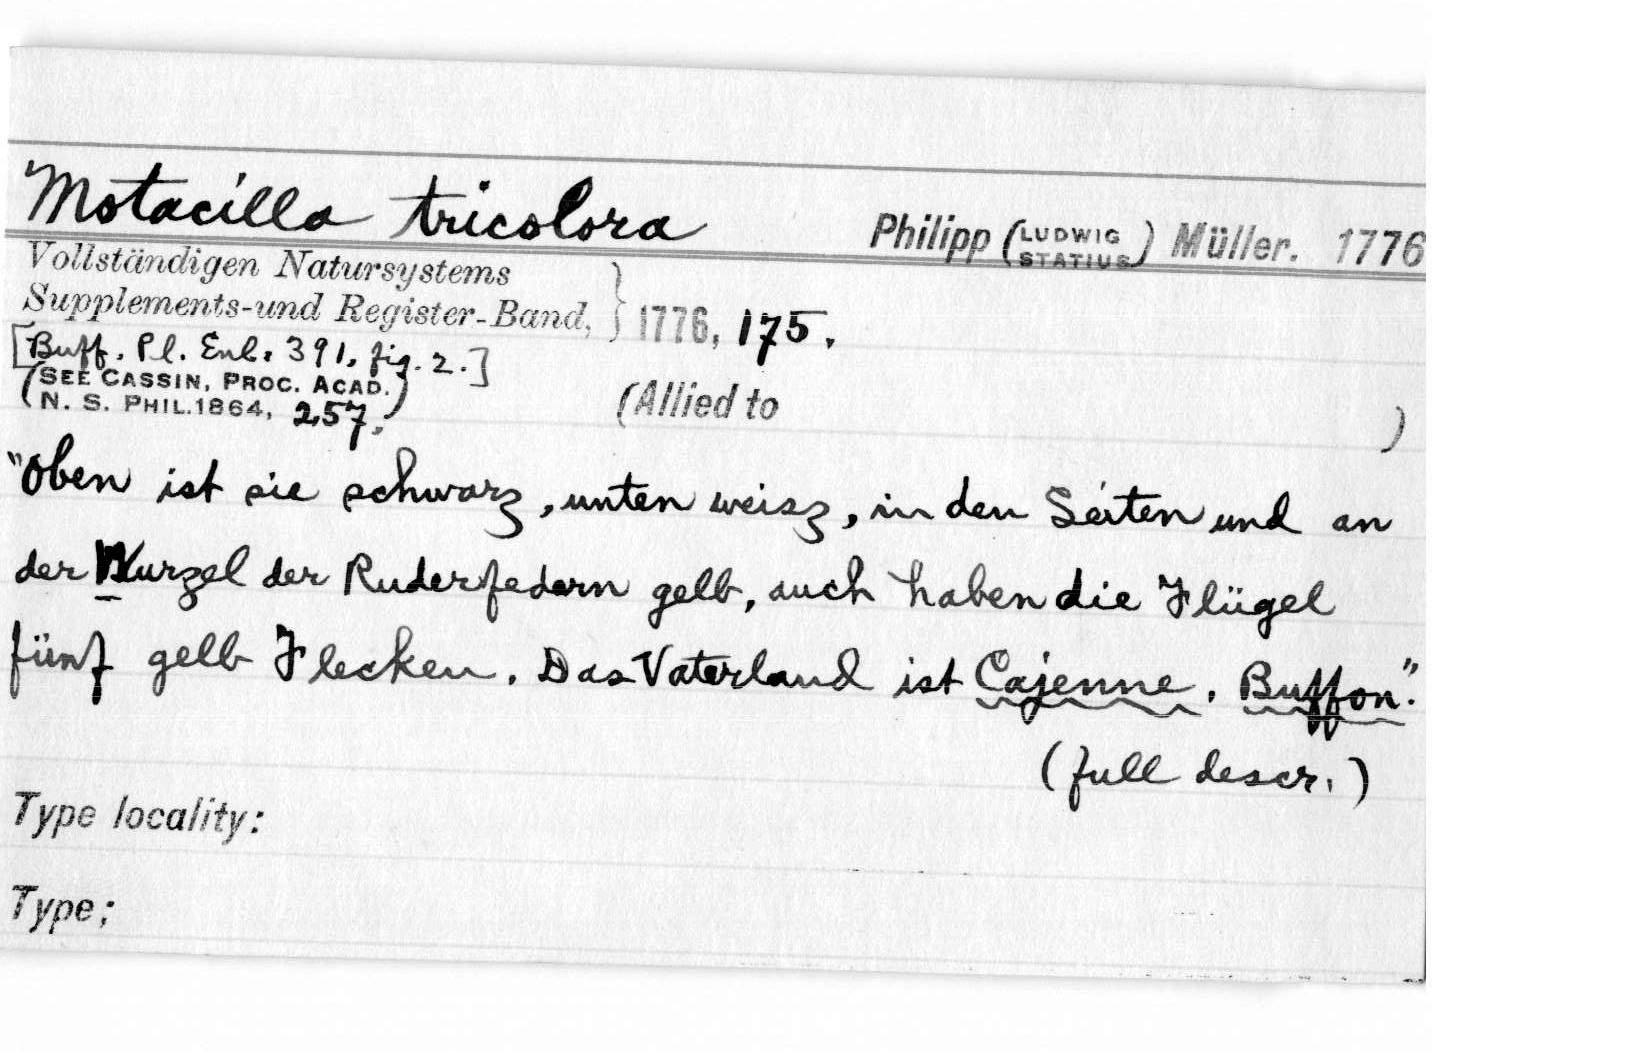 Motacilla tricolora Philipp (LUDWIG STATIUS) Müller. 1776
Vollständigen Natursystems
Supplements-und Register-Band, } 1776, 175.
[Buff. Pl. Enl. 391, fig. 2.]
(SEE CASSIN, PROC. ACAD.
N. S. PHIL. 1864, 257.)
(Allied to )
"Oben ist sie schwarz, unten weisz, in den Seiten und an
der Wurzel der Ruderfedern gelb, auch haben die Flügel
fünf gelb Flecken. Das Vaterland ist Cajenne. Buffon."
(full descr.)
Type locality:
Type;